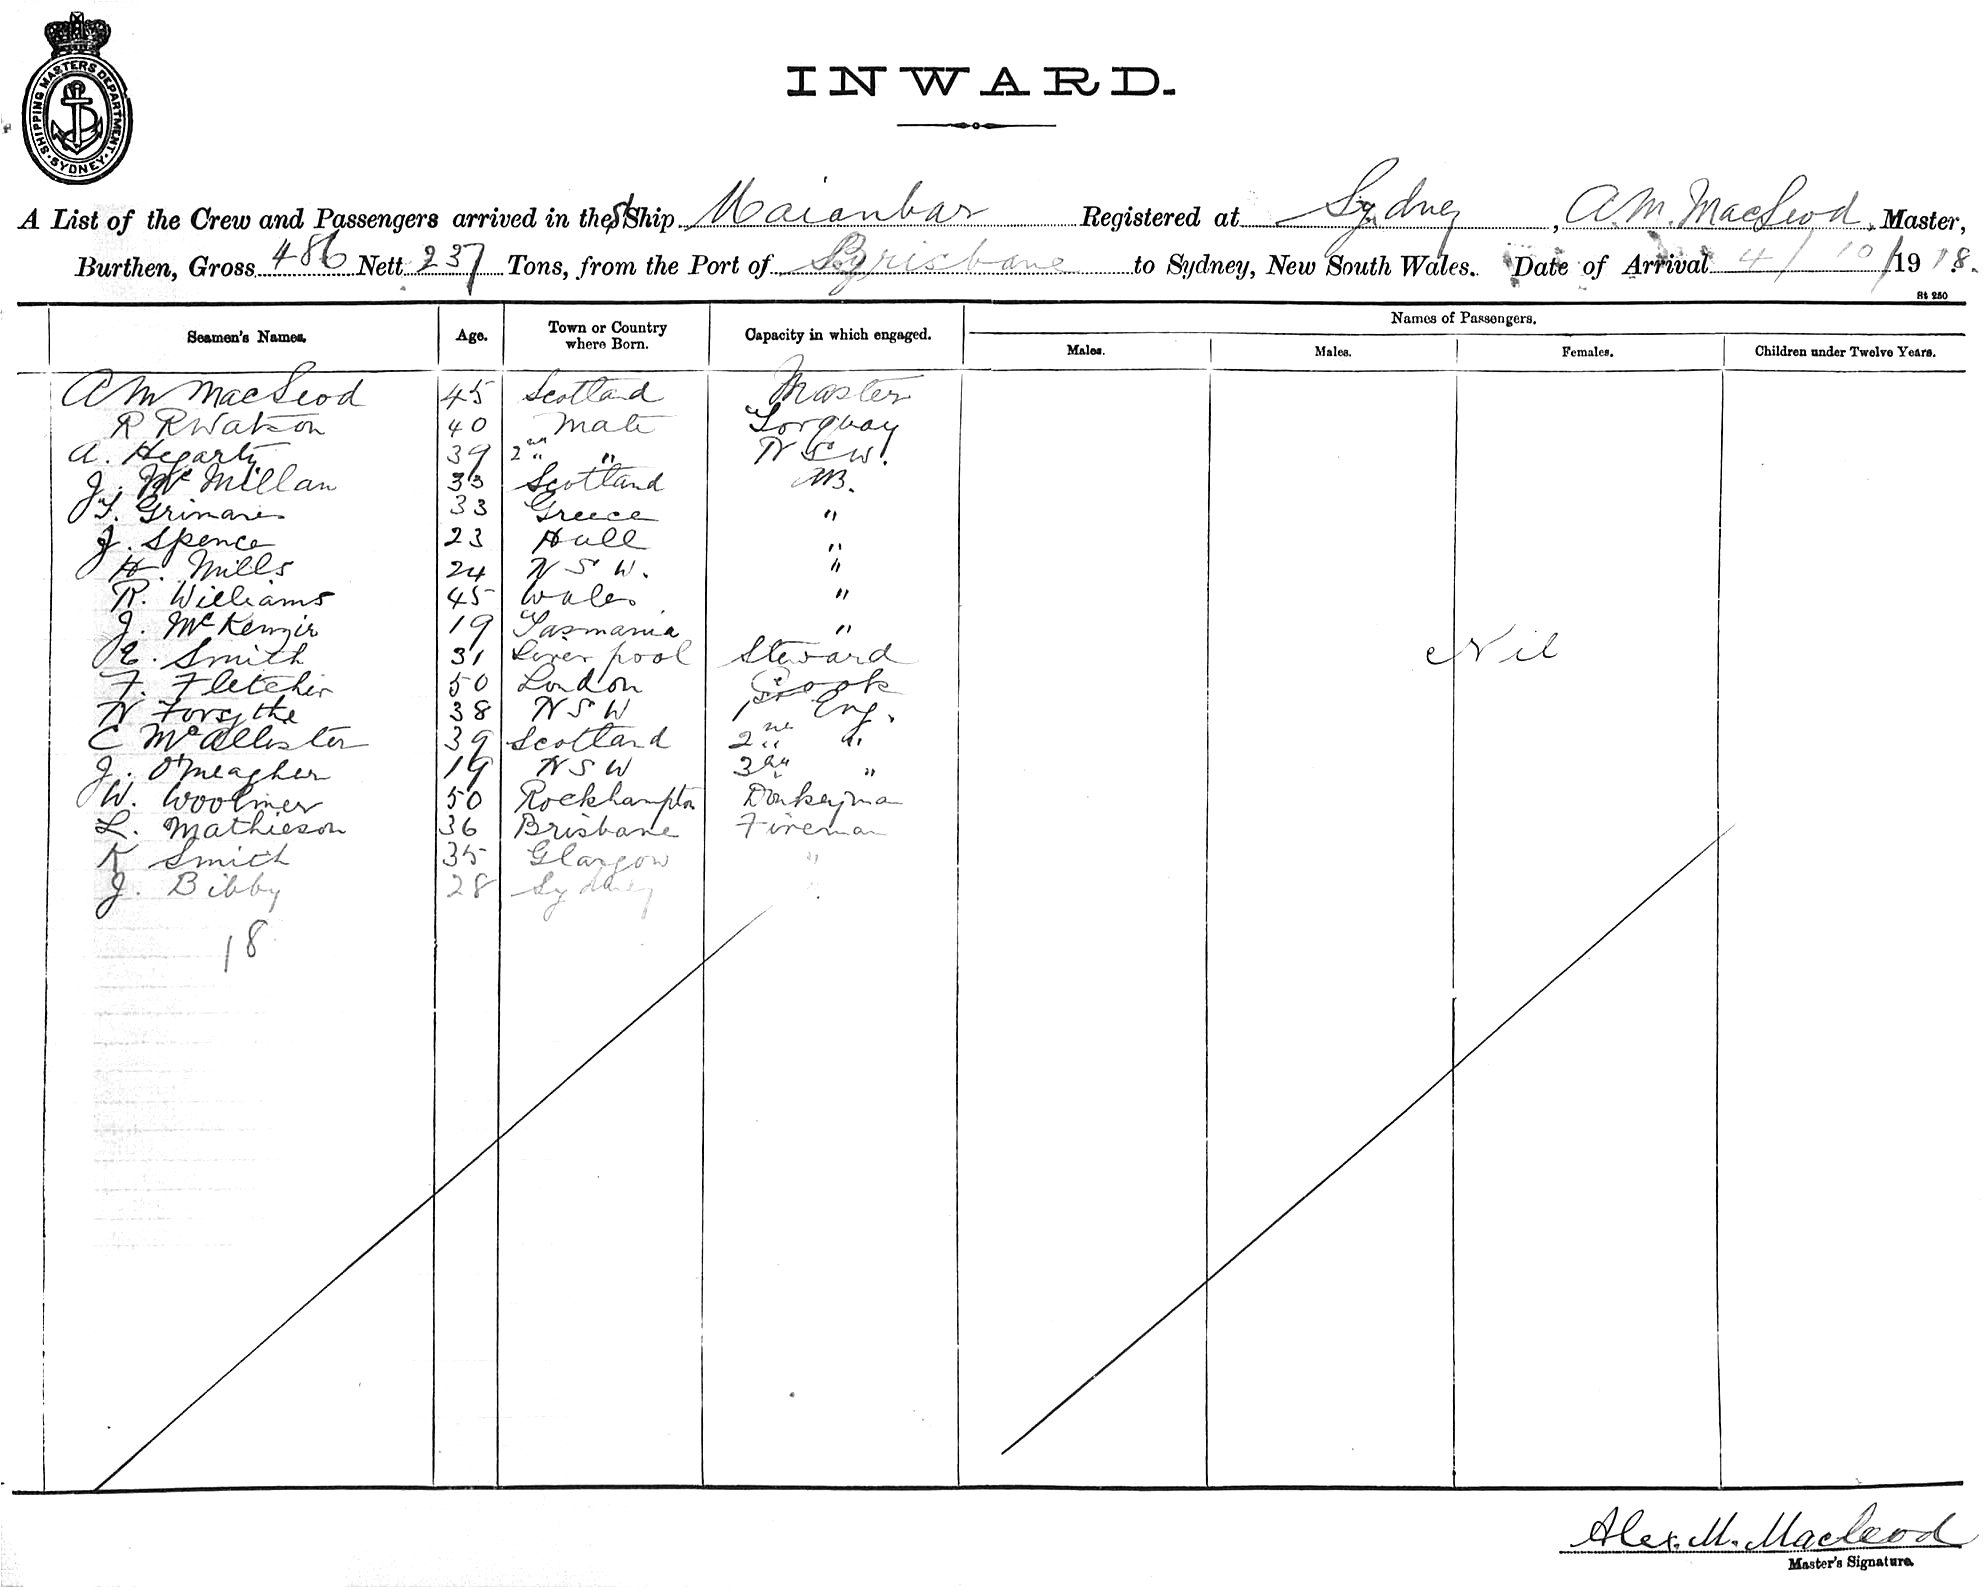 SHIPPING MASTERS DEPARTMENT · SYDNEY ·
INWARD.
A List of the Crew and Passengers arrived in the St Ship Maianbar Registered at Sydney, A.M. MacLeod, Master,
Burthen, Gross 486 Nett 237 Tons, from the Port of Brisbane to Sydney, New South Wales. Date of Arrival 4/10/1918.
St 250
Seamen's Names. Age. Town or Country where Born. Capacity in which engaged. Names of Passengers.
Males. Males. Females. Children under Twelve Years.
A M MacLeod 45 Scotland Master
R R Watson 40 Mate Torquay
A. Hegarty 39 2nd " N S W.
J. McMillan 33 Scotland AB.
Grimanes 33 Greece "
J. Spence 23 Hull "
H. Mills 24 N S W. "
R. Williams 45 Wales "
J. McKenzie 19 Tasmania "
E. Smith 31 Liverpool Steward
Nil
F. Fletcher 50 London Cook
W Forsythe 38 N S W 1st Eng.
C McAllister 39 Scotland 2nd "
J. O'Meagher 19 N S W 3rd "
W. Woolmer 50 Rockhampton Donkeyman
L. Mathieson 36 Brisbane Fireman
K Smith 35 Glasgow "
J. Bibby 28 Sydney "
18
Alex. M. Macleod
Master's Signature.